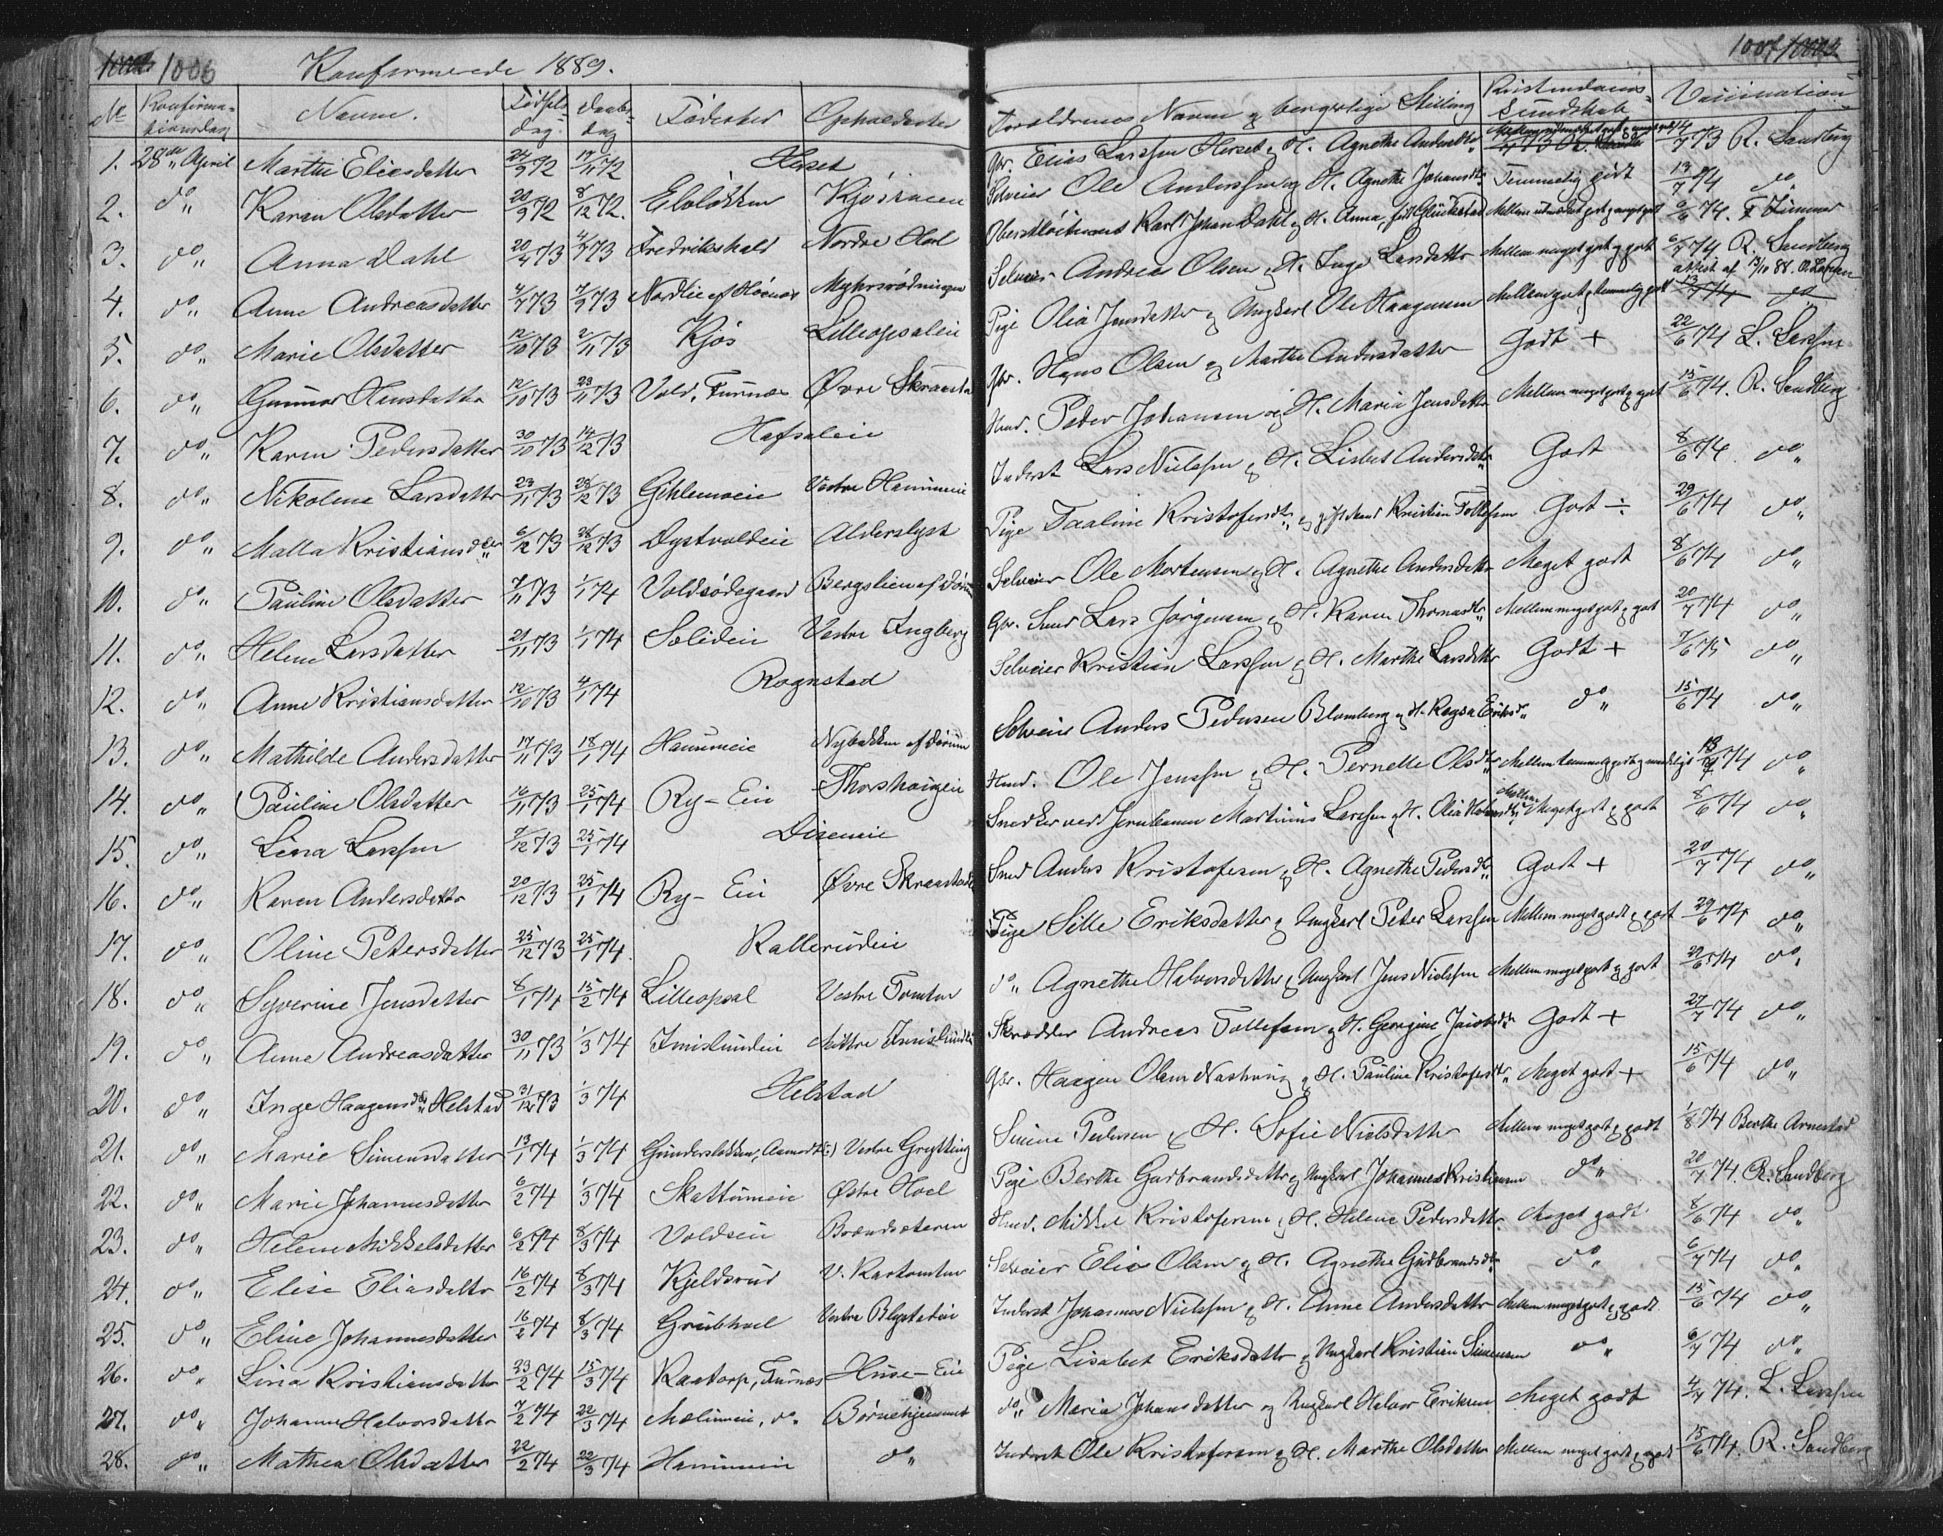 1006 Konfirmerede 1889. 1007
No Konfirmationsdag Navne. Fødselsdag. Daabsdag Fødested Opholdssted Forældrenes Navne og borgerlige Stilling Kristendomskundskab Vaccination
1. 28de April Marthe Eliesdatter 24/9 72 17/11 72 Herset Gbr. Elias Larssen Herset og H. Agnethe Andersdtr. 73 R. Sandberg
2. do Karen Olsdatter 20/9 72 8/12 72. Ebbløkken Kjøskacen Selveier Ole Anderssen og H. Agnethe Johansdtr. Temmelig godt 13/7 74 do
3. do Anna Dahl 20/4 73 4/7 73 Fredrikshald Nordre Hoel Oberstløitnant Karl Johan Dahl og H. Anna, født Glückstad 6/6 74. F Zimmer
4. do Anne Andreasdatter 4/7 73 7/9 73 Nordlie af Hørnes Myhrsrødningen Selveier Andreas Olsen og H. Inge Larsdatter Mellem meget godt og godt 6/7 74 R. Sandberg
attest af 13/10 88. O. Larsen
5. do Marie Olsdatter 12/10 73 2/11 73 Kjøs Lilleopsaleie Pige Olia Jensdatter og Ungkarl Ole Haagensen Mellem godt og temmelig godt 13/7 74 do
6. do Gunnor Hansdatter 12/10 73 23/11 73 Vold, Furnæs Øvre Skraastad Gbr. Hans Olsen og Marthe Andersdatter Godt + 22/6 74 L. Larssen
7. do Karen Pedersdatter 30/10 73 14/12 73 Hafsaleie Hmd. Peder Johansen og H. Maria Jensdatter Mellem meget godt og godt 15/6 74. R. Sandberg
8. do Nikoline Larsdatter 23/11 73 26/12 73 Gihlemoeie Vestre Hammeie Inderst Lars Nielssen og H. Lisbet Andersdtr. Godt 8/6 74 do
9. do Malla Kristiansdtr 6/12 73 26/12 73 Dystvoldeie Alderslyst Pige Taaline Kristofersdtr. og gift Mand Kristian Tollefsen Godt ÷ 29/6 74 do
10. do Pauline Olsdatter 7/11 73 1/1 74 Voldsødegaard Bergslien af Selveier Ole Mortensen og H. Agnethe Andersdatter Meget godt 8/6 74 do
11. do Helene Larsdatter 21/11 73 1/1 74 Solideie Vestre Ingberg Gbr. Smed Lars Jørgensen og H. Karen Thomasdtr Mellem meget godt og godt 20/7 74 do
12. do Anne Kristiansdatter 12/10 73 4/1 74 Rognstad Selveier Kristian Larssen og H. Marthe Larsdatter Godt + 7/6 75 do
13. do Mathilde Andersdatter 17/11 73 18/1 74 Hammeie Nybakken af Selveier Anders Pedersen Blomberg og H. Ragna Eriksd. do 15/6 74 do
14. do Pauline Olsdatter 16/11 73 25/1 74 Ry-Eie Thorshaugeie Hmd. Ole Jenssen og H. Pernelle Olsdtr Mellem temmelig godt og maadeligt 13/7 74 do
15. do Lina Larssen 7/12 73 25/1 74 Diseneie Snedker ved Jernbanen Martinius Larssen og H. Olia Mellem Meget godt og godt 8/6 74 do
16. do Karen Andersdatter 20/12 73 25/1 74 Ry-Eie Øvre Skraastad Smed Anders Kristofersen og H. Agnethe Pedersdtr. Godt + 20/7 74 do
17. do Oline Petersdatter 25/12 73 25/1 74. Kallerudeie Pige Sille Eriksdatter og Ungkarl Peter Larssen Mellem meget godt og godt 29/6 74 do
18. do Syverine Jensdatter 6/1 74 15/2 74 Lilleopsal Vestre Tomter do Agnethe Halvorsdatter og Ungkarl Jens Nielssen Mellem meget godt og godt 29/6 74 do
19. do Anne Andreasdatter 30/11 73 1/3 74 Imislundeie Mittre Imislundeie Skrædder Andreas Tollefsen og H. Georgine Jacobsdtr. Godt + 27/7 74 do
20. do Inge Haagensdtr Helstad 31/12 73 1/3 74 Helstad Gbr. Haagen Olsen og H. Pauline Kristofersdtr Meget godt + 15/6 74 do
21. do Marie Simensdatter 13/1 74 1/3 74 Gunderslokken, Aamodt Vestre Grytting Simen Pedersen og H. Sofie Nielsdatter Mellem meget godt og godt 1/8 74 Berthe Arnestad
22. do Marie Johannesdatter 6/2 74 1/3 74 Skattumeie Østre Hoel Pige Berthe Gudbrandsdatter og Ungkarl Johannes Kristiansen do 20/7 74 R. Sandberg
23. do Helene Mikkelsdatter 6/2 74 8/3 74 Voldseie Brændsæteren Hmd. Mikkel Kristofersen og H. Helene Pedersdatter. Meget godt 8/6 74 do
24. do Elise Eliasdatter 16/2 74 8/3 74 Kjeldsrud V. Kartomten Selveier Elias Olsen og H. Agnethe Gudbrandsdtr do 6/7 74 do
25. do Eline Johannesdatter 16/2 74 8/3 74 Grubhoel Vestre Blystadeie Inderst Johannes Nielssen og H. Anne Andersdatter Mellem meget godt og godt. 15/6 74 do
26. do Lina Kristiansdatter 23/2 74 15/3 74 Kaatorp, Furnæs Huse-Eie Pige Lisabet Eriksdatter og Ungkarl Kristian Simensen do 6/7 74 do
27. do Johanne Halvorsdatter 7/2 74 22/3 74 Mælumeie, do. Børnehjemmet do Maria Johansdatter og Ungkarl Halvor Eriksen Meget godt 4/7 74. L. Larssen
28. do Mathea Olsdatter 22/2 74 22/3 74 Hammeie do Inderst Ole Kristofersen og H. Marthe Olsdatter Mellem meget godt og godt 15/6 74. R. Sandberg